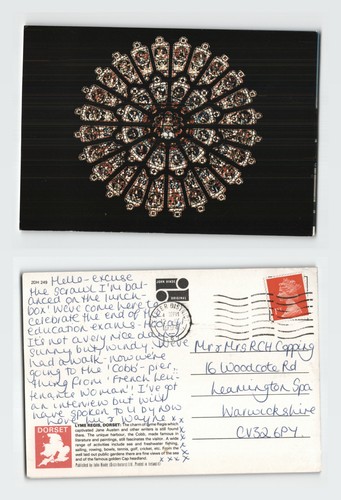 2DH 248
Hello - excuse
the scrawl I'm bal-
anced on the lunch-
box! We've come here to
celebrate the end of
education exams - Hooray!
It's not a very nice day -
sunny but windy. We've
had a walk - now we're
going to the 'Cobb' - pier -
thing from 'French Lieu-
tenants Woman'! I've got
an interview but will
have spoken to U by now
Love Liz & Wayne x x
x
x
x x x
DORSET
LYME REGIS, DORSET: The charm of Lyme Regis which
captivated Jane Austen and other writers is still found
there. The unique harbour, the Cobb, made famous in
literature and paintings, still fascinates the visitor. A wide
range of activities include sea and freshwater fishing,
sailing, rowing, bowls, tennis, golf, cricket, etc. From the
well laid out public gardens there are fine views of the sea
and of the famous golden Cap headland.
Published by John Hinde (Distributors) Ltd.
Mr & Mrs R C H Copping
16 Woodcote Rd
Leamington Spa
Warwickshire
CV32 6PY.